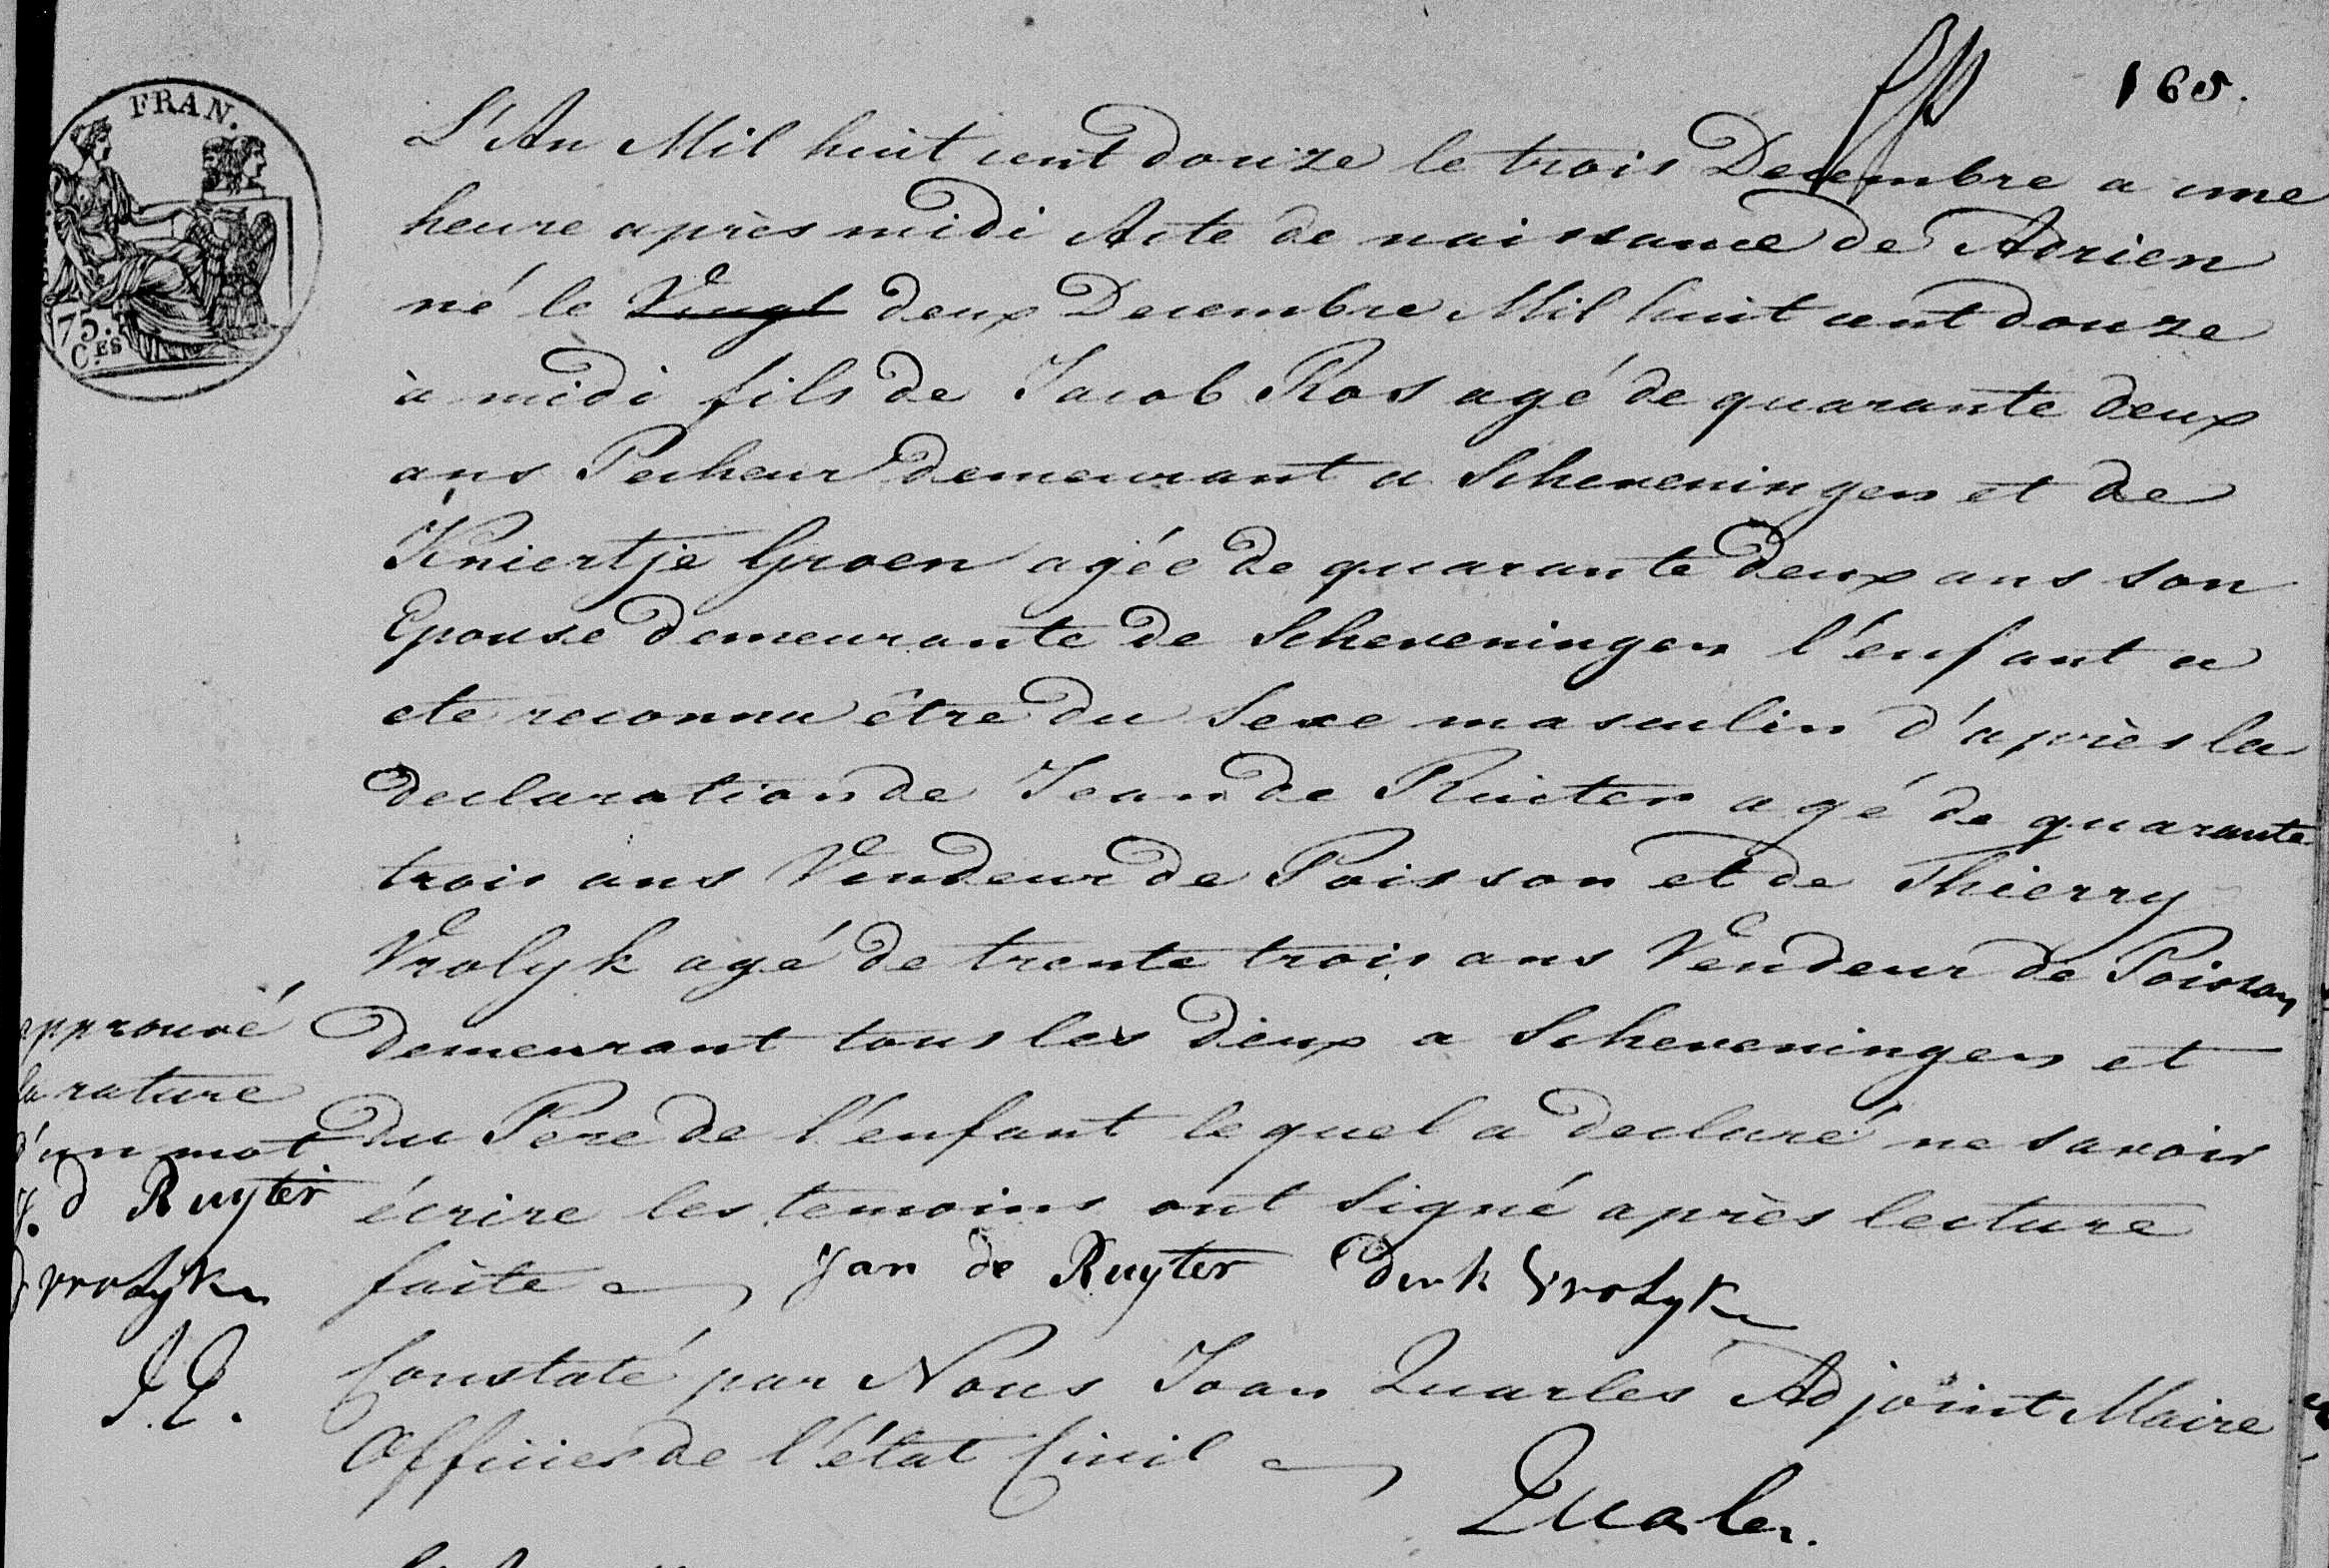 165.
FRAN.
75.
C.ES
L'An Mil huit cent douze le trois Decembre a une
heure après midi Acte de naissance de Adrien
né le Vingt deux Decembre Mil huit cent douze
à midi fils de Jacob Ros agé de quarante deux
ans Pecheur demeurant a Scheveningen et de
Kniertje Groen agée de quarante deux ans son
Epouse demeurante de Scheveningen l'enfant a
ete reconnu être du Sexe masculin d'après la
declaration de Jean de Ruiter agé de quarante
trois ans Vendeur de Poisson et de Thierry
Vrolyk agé de trente trois ans Vendeur de Poisson
demeurant tous les deux a Scheveningen et
du Pere de l'enfant lequel a declaré ne savoir
écrire les temoins ont signé après lecture
faite Jan de Ruyter Dirk Vrolyk
Constaté par Nous Joan Quarles Adjoint Maire
Officier de l'état Civil
Quarles.
approuvé
la rature
d'un mot
J. d Ruyter
D vrolyk
J.Q.